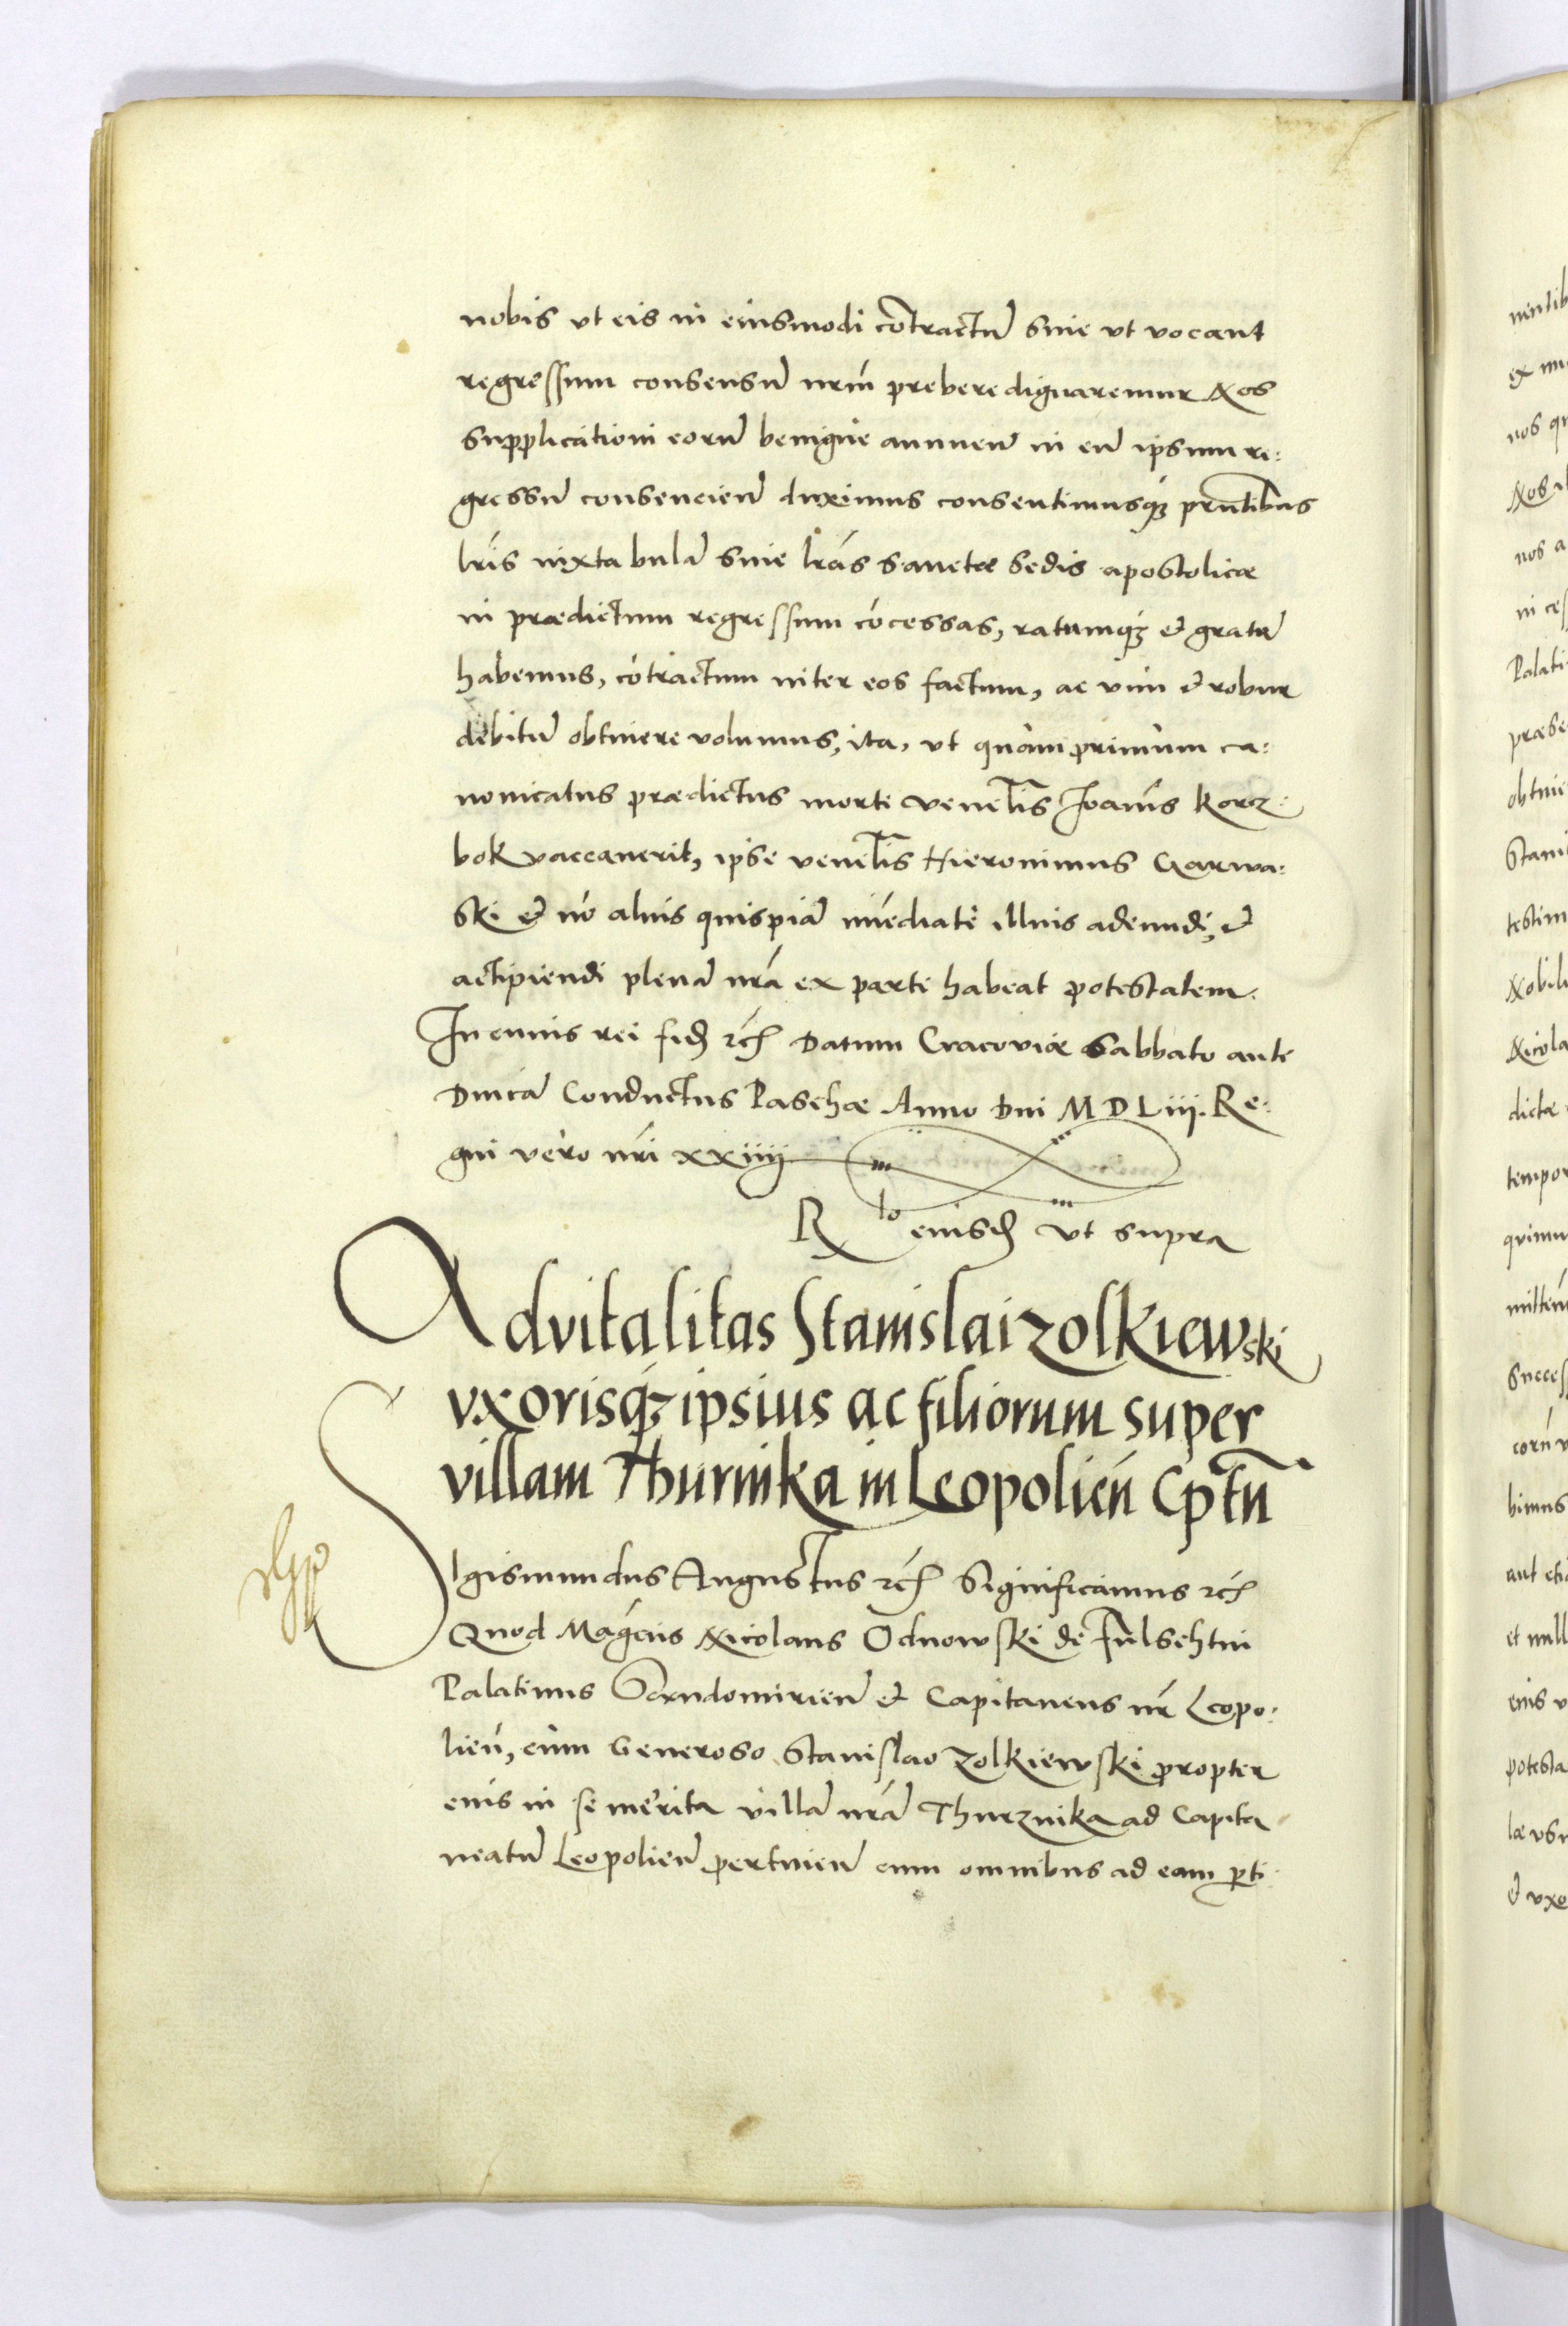 nobis vt eis in eiusmodi cōtractū siue vt vocant
regressum consensū nrm̄ prebere dignaremur Nos
supplicationi eorū benigne annuen̄ in eū ipsum re:
gressū consencien̄ duximus consentimusq3 prn̄tibus
lr̄is iuxta bulā siue lrās sanctæ sedis apostolicæ
in prædictum regressum cōcessas, ratumq3 et gratū
habemus, cōtractum inter eos factum, ac vim et robur
debitū obtinere volumus, ita, vt quàm primùm ca:
nonicatus prædictus morte venel̄is Joan̄is Korcz:
bok vaccauerit, ipse venel̄is Hieronimus Czarwa:
ski et nō alius quispiā im̄ediate illius adeundi, et
actipiendi plenā nrā ex parte habeat potestatem.
In cuius rei fid) rc̄ Datum Cracoviæ Sabbato ante
Dnicā Conductus Paschæ Anno Dni M D L iij. Re:
gni vero nr̄i xxiiij
R to eiusd) vt supra
Advitalitas Stanislai zolkiewski
vxorisq3 ipsius ac filiorum super
villam Thurnika in Leopolien̄ Cptn̄
Sigismundus Augustus rc̄ Significamus rc̄
Quod Mag̃cus Nicolaus Odnowski de Fulschtin
Palatinus Sandomirien̄ et Capitaneus nr̄ Leopo:
lien̄, cum Generoso Stanislao zolkiewski propter
eius in se merita villā nrā Thurznika ad Capita
neatū Leopolien̄ pertinen̄ cum omnibus ad eam pti: